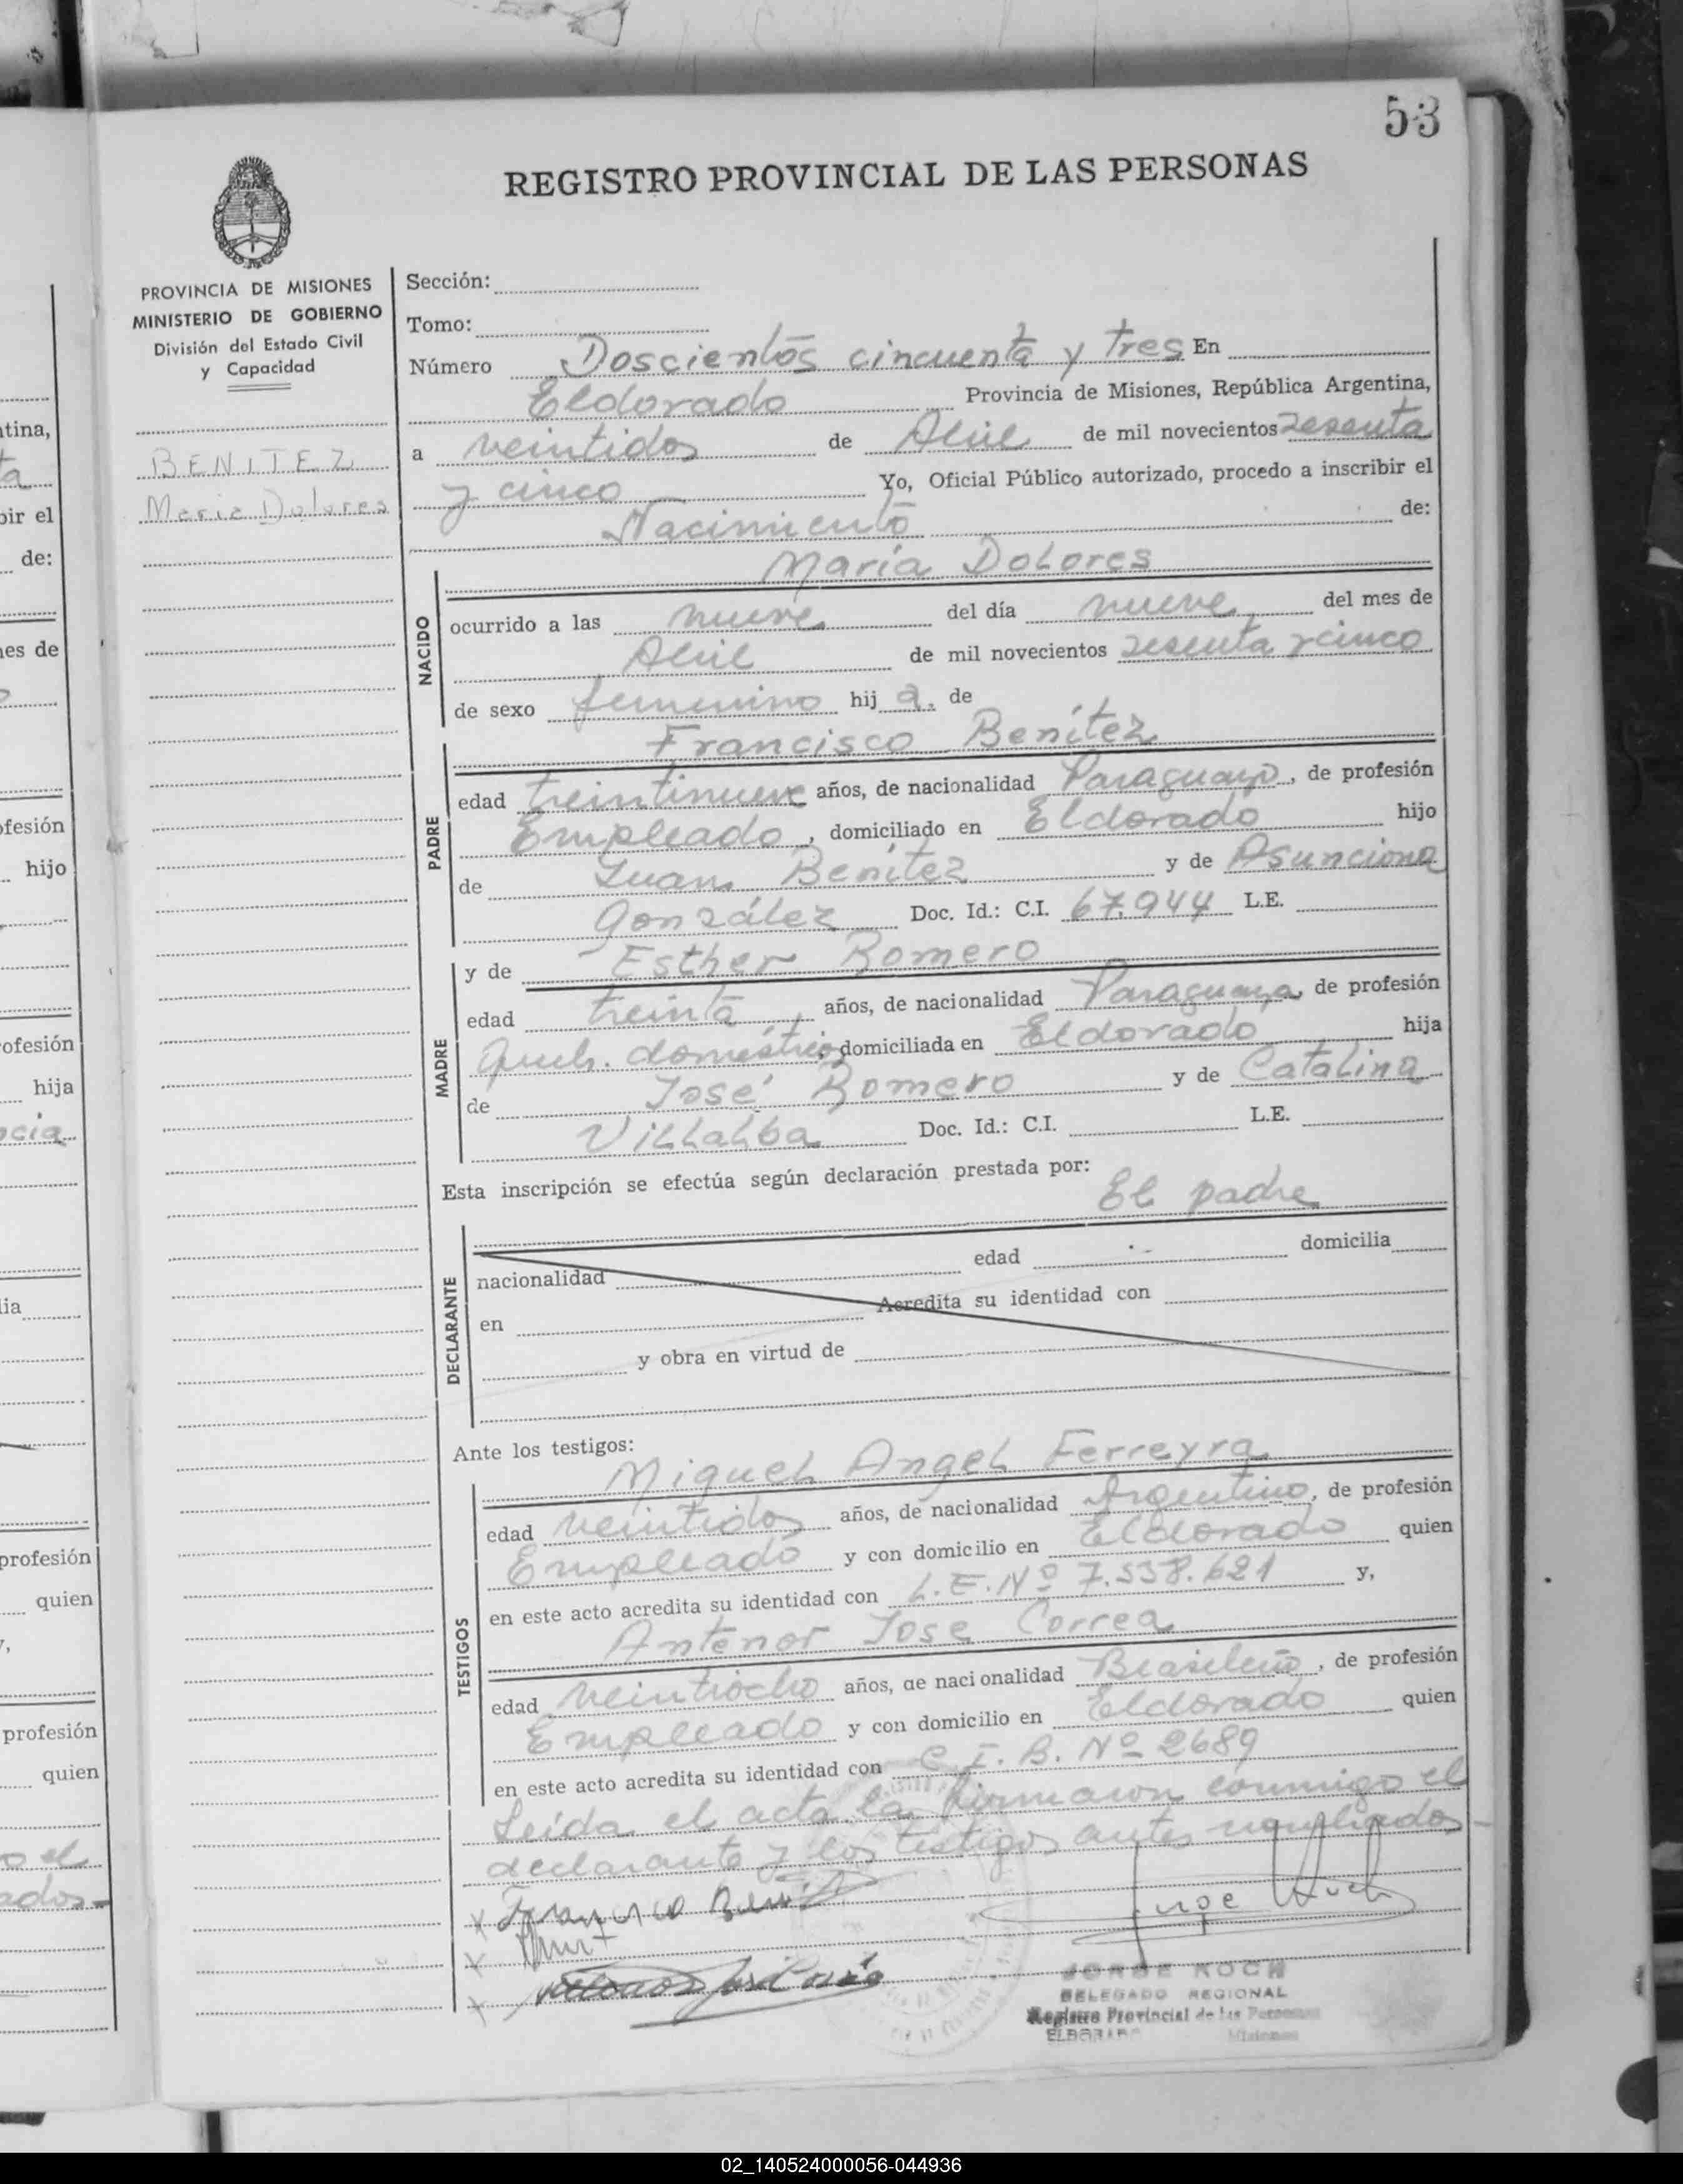 53
REGISTRO PROVINCIAL DE LAS PERSONAS
PROVINCIA DE MISIONES
MINISTERIO DE GOBIERNO
División del Estado Civil
y Capacidad
BENITEZ
Maria Dolores
Sección:
Tomo:
Número Doscientos cincuenta y tres En
Eldorado Provincia de Misiones, República Argentina,
a veintidos de Abril de mil novecientos sesenta
y cinco Yo, Oficial Público autorizado, procedo a inscribir el
Nacimiento de:
María Dolores
NACIDO
ocurrido a las nueve del día nueve del mes de
Abril de mil novecientos sesenta y cinco
de sexo femenino hij a. de
Francisco Benítez
PADRE
edad treintinueve años, de nacionalidad Paraguayo, de profesión
Empleado, domiciliado en Eldorado hijo
de Juan Benítez y de Asunciona
González Doc. Id.: C.I. 67.944 L.E.
MADRE
y de Esther Romero
edad treinta años, de nacionalidad Paraguaya, de profesión
Queh. domésticos, domiciliada en Eldorado hija
de José Romero y de Catalina
Villalba Doc. Id.: C.I. L.E.
Esta inscripción se efectúa según declaración prestada por:
El padre
DECLARANTE
nacionalidad edad domicilia
en Acredita su identidad con
y obra en virtud de
Ante los testigos:
Miguel Angel Ferreyra
TESTIGOS
edad veintidos años, de nacionalidad Argentino, de profesión
Empleado y con domicilio en Eldorado quien
en este acto acredita su identidad con L.E. Nº 7.538.621 y,
Antenor Jose Correa
edad veintiocho años, de nacionalidad Brasileño, de profesión
Empleado y con domicilio en Eldorado quien
en este acto acredita su identidad con C.I.B. Nº 2689
Leída el acta la firmaron conmigo el
declarante y los testigos antes nombrados-
Francisco Benitez
Jorge Koch
JORGE KOCH
DELEGADO REGIONAL
Registro Provincial de las Personas
ELDORADO Misiones
tina,
ta
bir el
de:
nes de
ofesión
hijo
ofesión
hija
ncia
lia
profesión
quien
y,
profesión
quien
o el
ados-
02_140524000056-044936